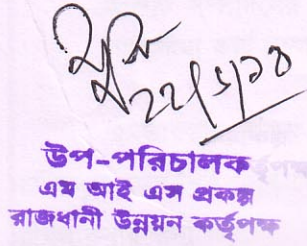 ২২/৫/১৩
উপ-পরিচালক
এম আই এস প্রকল্প
রাজধানী উন্নয়ন কর্তৃপক্ষ